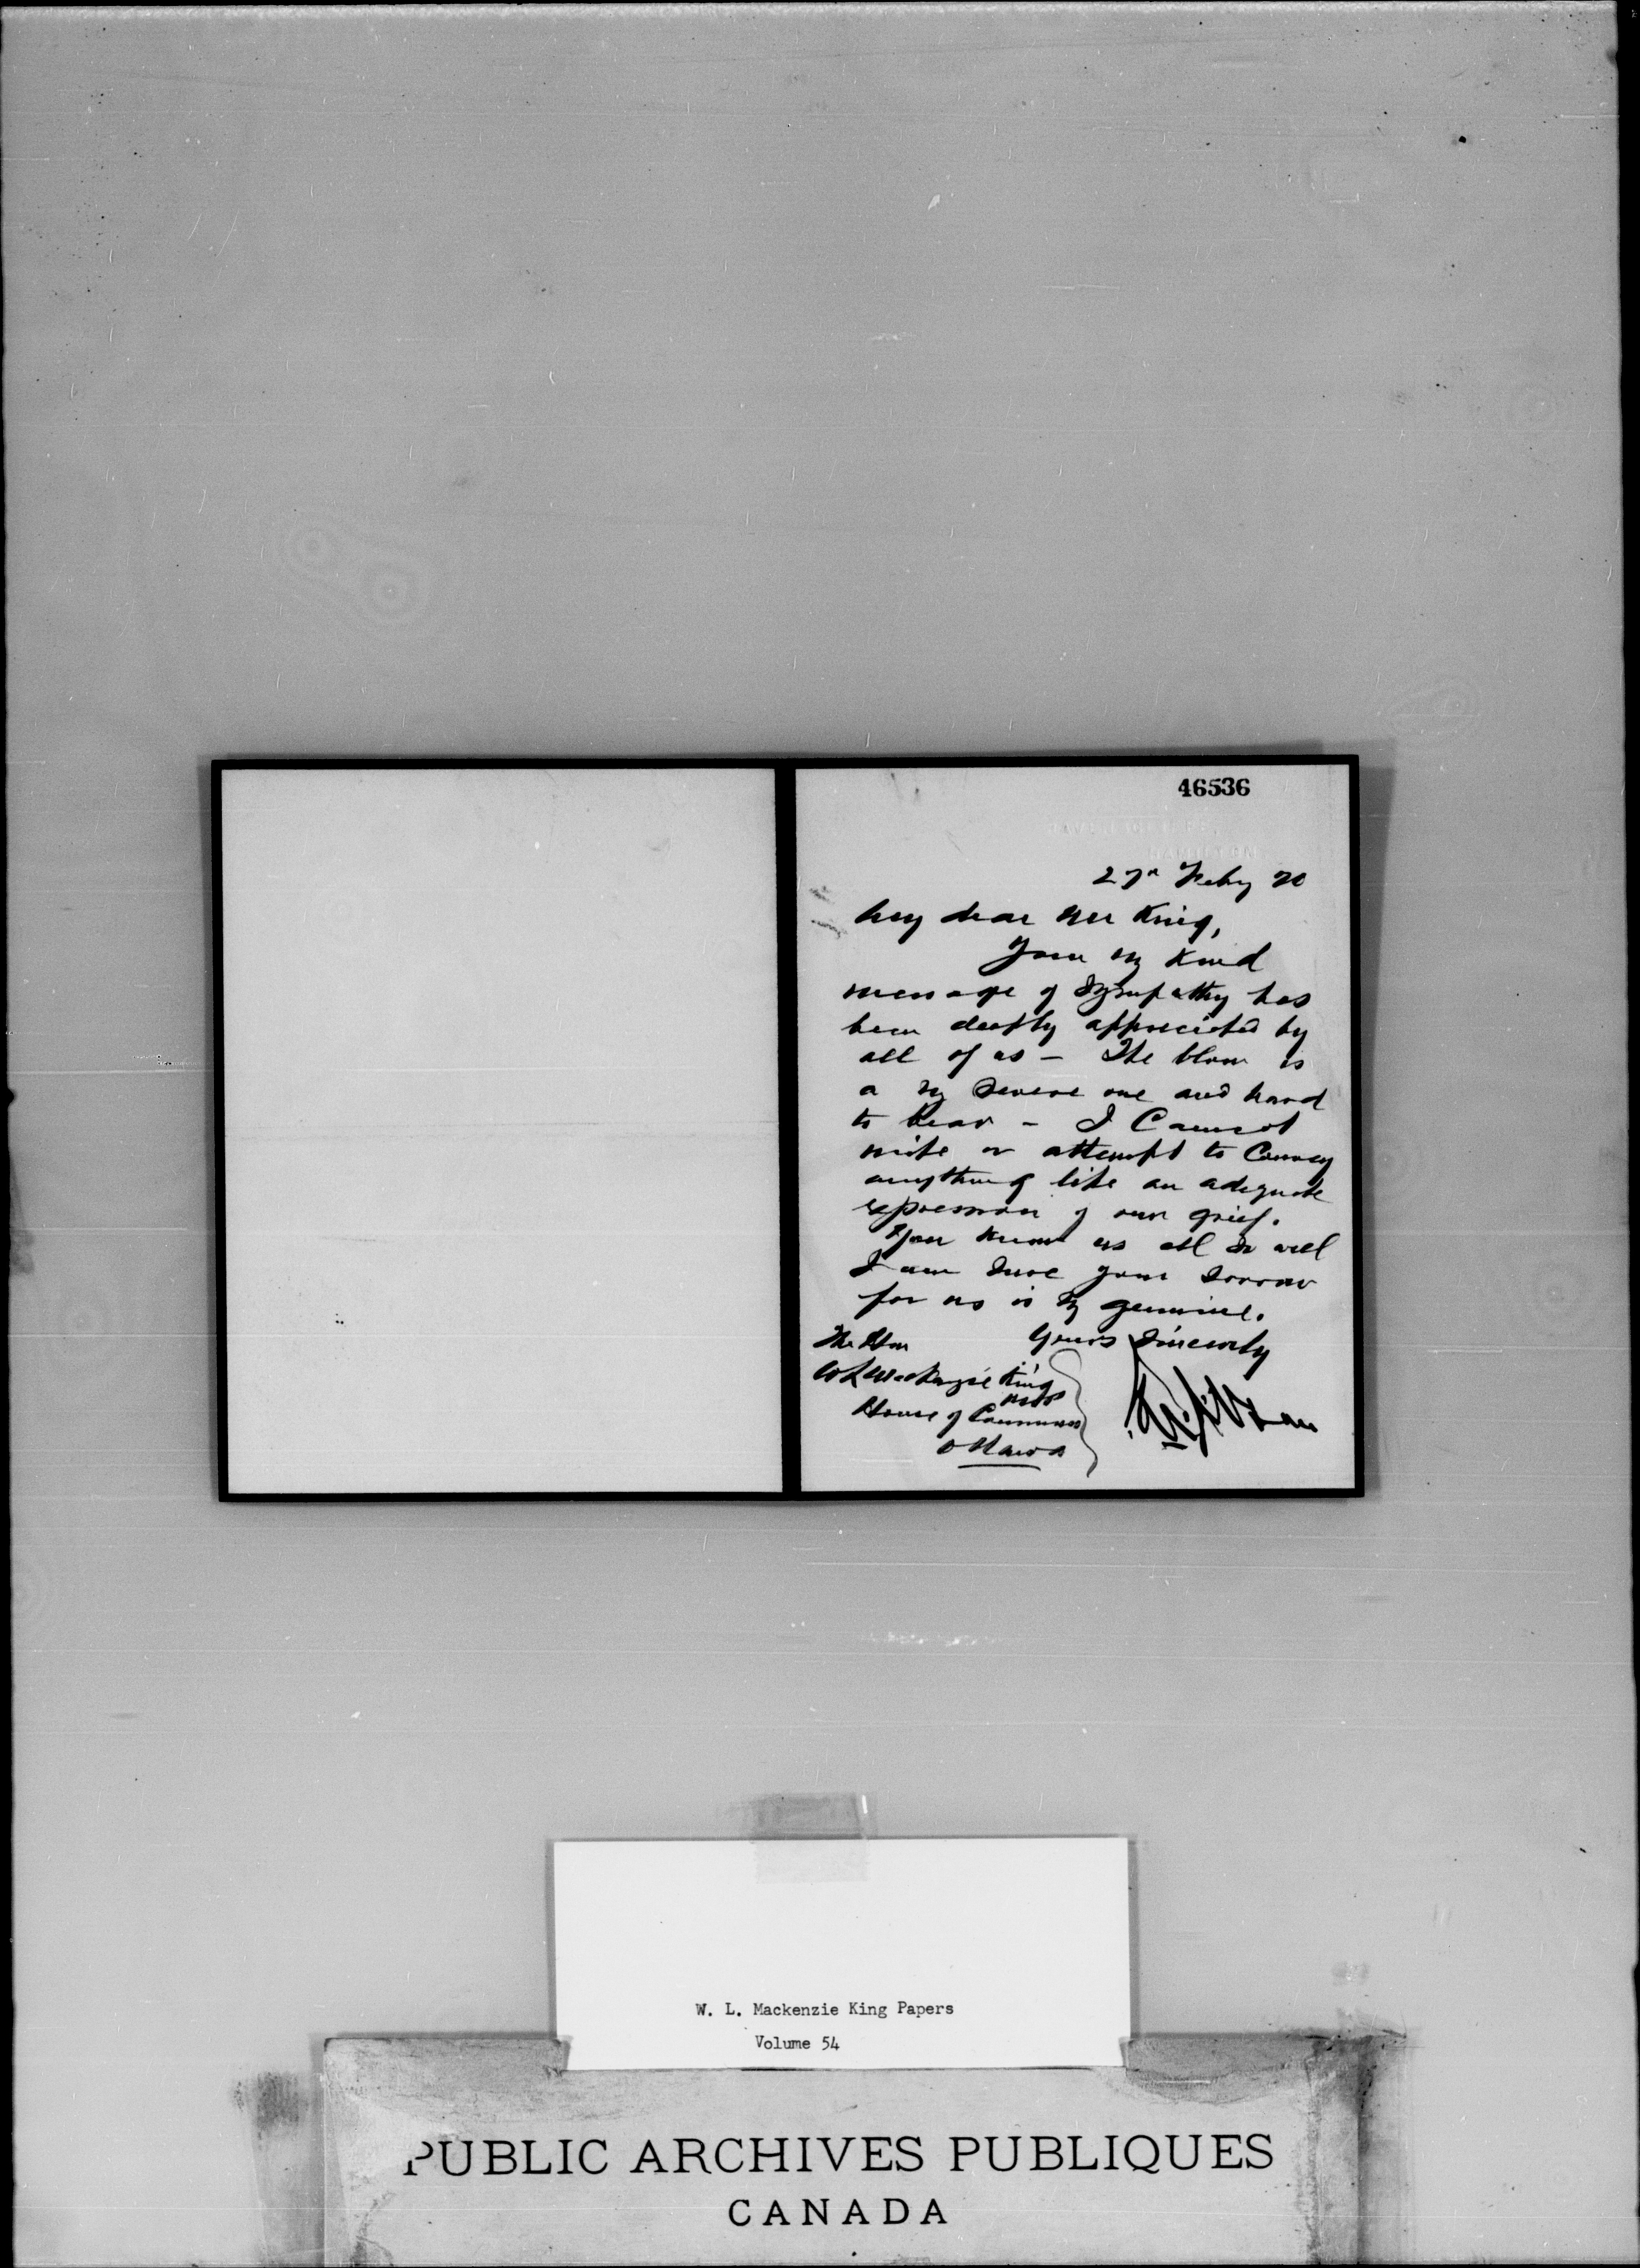 46536
27th Feby 20
My dear Mr King,
Your vy kind
message of sympathy has
been deeply appreciated by
all of us — The blow is
a vy severe one and hard
to bear — I cannot
write or attempt to convey
anything like an adequate
expression of our grief.
You know us all so well
I am sure your sorrow
for us is vy genuine.
Yours Sincerely
The Hon
W L MacKenzie King
House of Commons
Ottawa
W. L. Mackenzie King Papers
Volume 54
PUBLIC ARCHIVES PUBLIQUES
CANADA